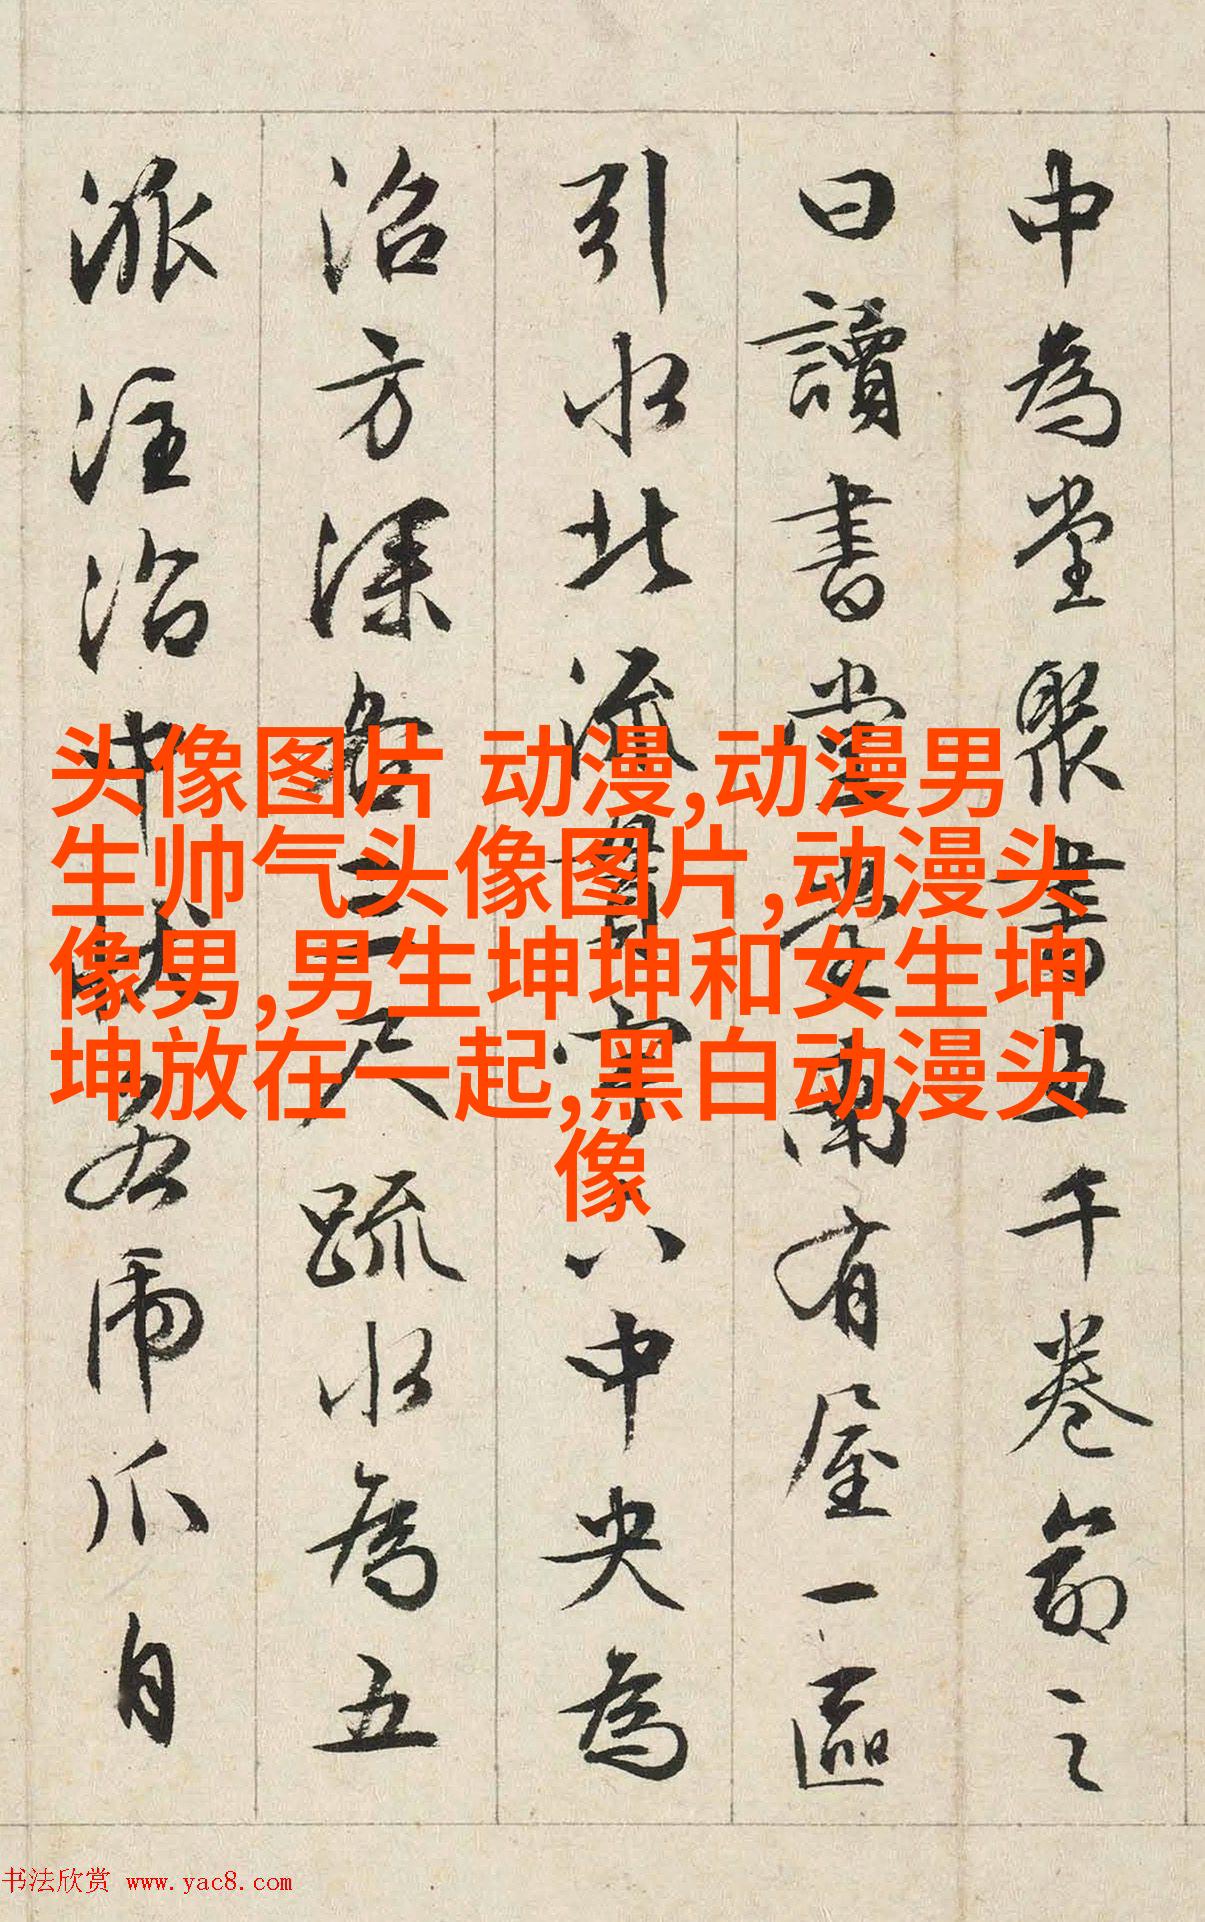 中為堂聚書五千卷命之
曰讀書堂南有屋一區
引水北流貫宇下中央為
沼方深各三尺疏水為五
派注沼中狀若虎爪自
头像图片 动漫,动漫男
生帅气头像图片,动漫头
像男,男生坤坤和女生坤
坤放在一起,黑白动漫头
像
书法欣赏 www.yac8.com